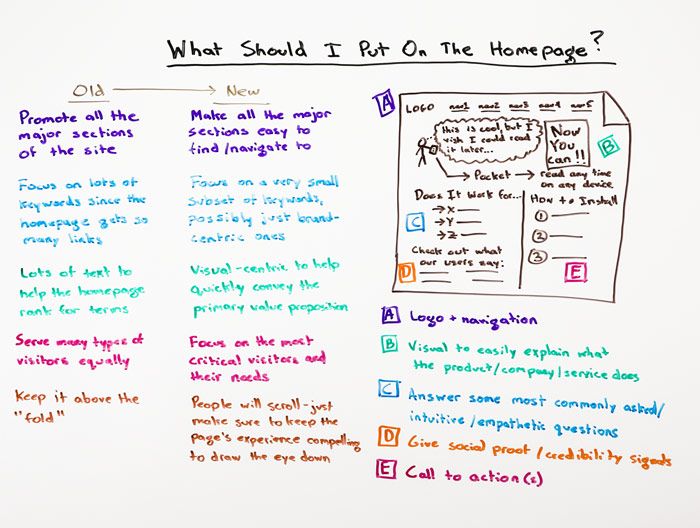 What Should I Put On The Homepage?
Old → New
Promote all the
major sections
of the site
Make all the major
sections easy to
find/navigate to
Focus on lots of
keywords since the
homepage gets so
many links
Focus on a very small
subset of keywords,
possibly just brand-
centric ones
Lots of text to
help the homepage
rank for terms
Visual-centric to help
quickly convey the
primary value proposition
Serve many types of
visitors equally
Focus on the most
critical visitors and
their needs
Keep it above the
"fold"
People will scroll-just
make sure to keep the
page's experience compelling
to draw the eye down
A
LOGO nav1 nav2 nav3 nav4 nav5
this is cool, but I
wish I could read
it later...
Now
You
can!!
B
→ Pocket → read any time
on any device
Does It Work for...
→X
→Y
→Z
C
How to Install
1
2
3
Check out what
our users say:
D
E
A Logo + navigation
B Visual to easily explain what
the product/company/service does
C Answer some most commonly asked/
intuitive/empathetic questions
D Give social proof/credibility signals
E Call to action(s)